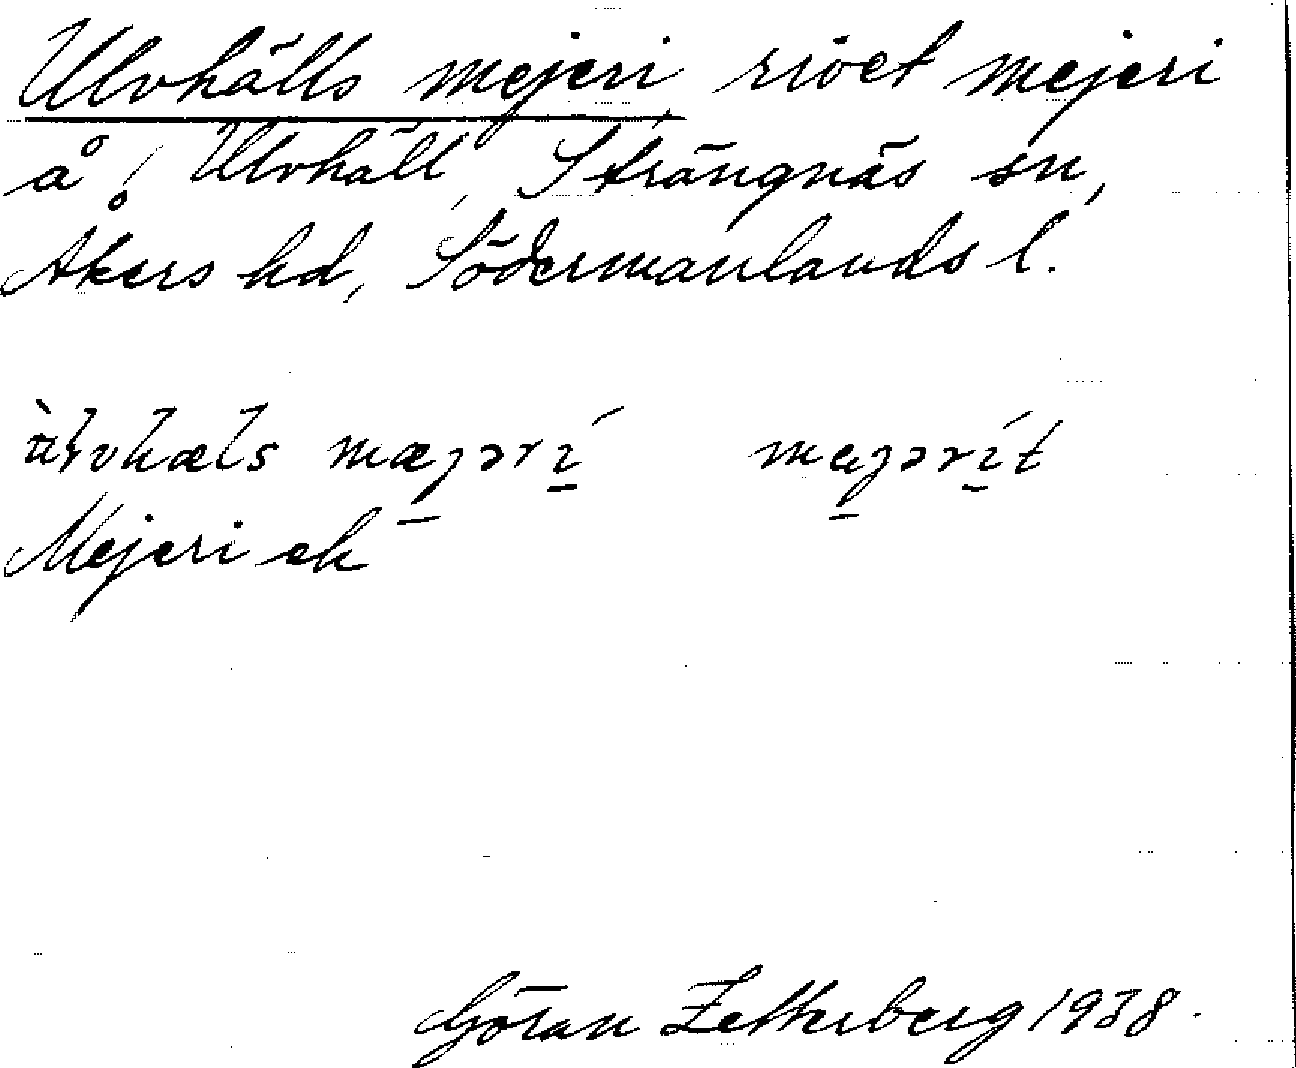 Ulvhälls mejeri rivet mejeri
å Ulvhäll, Strängnäs sn,
Åkers hd, Södermanlands l.
ùlvhæls mæjərí mejərít
Mejeri ek
Göran Zetterberg 1938.